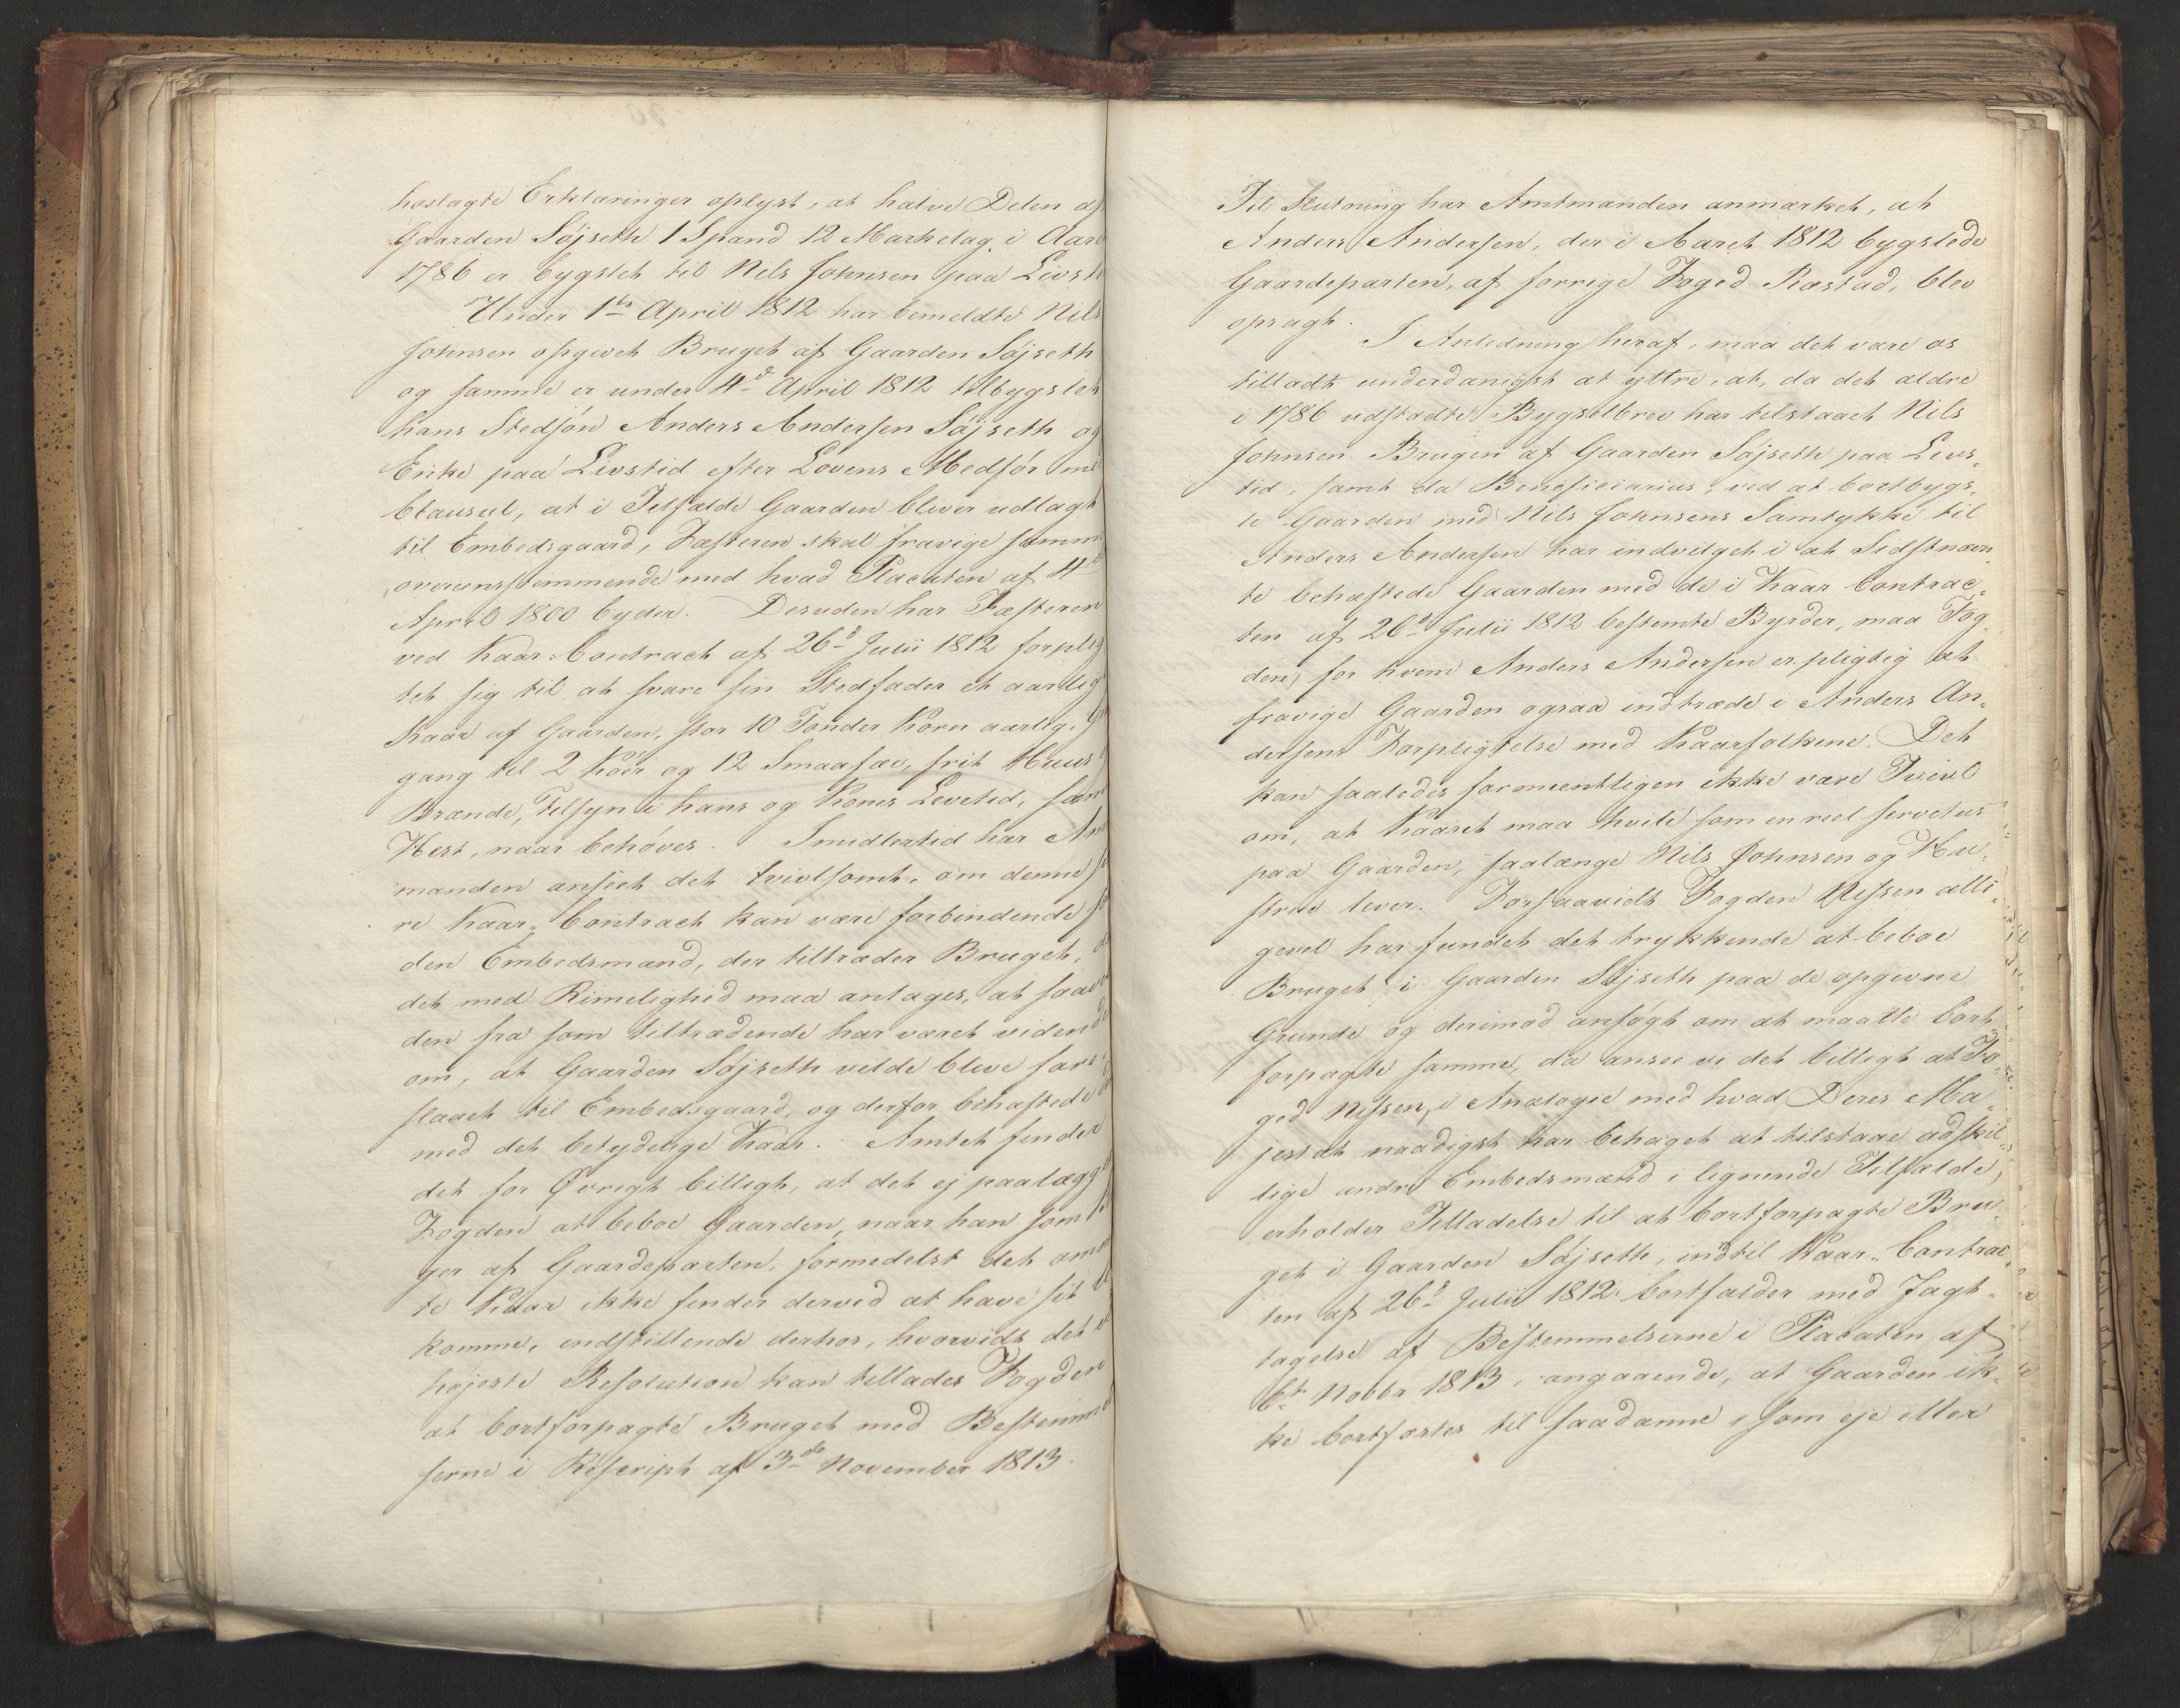 hoslagte Erklæringer oplyst, at halve Delen af
Gaarden Søjseth 1 Spand 12 Markelag, i Aaret
1786 er bygslet til Nils Johnsen paa Livst
Under 1te April 1812 har bemeldte Nils
Johnsen opgivet Bruget af Gaarden Søjseth
og samme er under 4d April 1812 tilbygslet
hans Stedsøn Anders Andersen Søjseth og
Enke paa Livstid efter Lovens Medfør med
Clausul, at i Tilfælde Gaarden bliver udlagt
til Embedsgaard, Fæsteren skal fravige samme
overensstemmende med hvad Placaten af 4d
April 1800 byder. Desuden har Fæsteren
ved Kaar-Contract af 26d Julii 1812 forplig
tet sig til at svare sin Stedfader et aarligt
Kaar af Gaarden, stor 10 Tønder Korn aarlig,
gang til 2 Køer og 12 Smaafæe, frit Huus
Brænde, Tilsyn i hans og Kones Levetid, samt
Hest, naar behøves. Imidlertid har Amt
manden anseet det tvivlsomt, om denne
re Kaar-Contract kan være forbindende for
den Embedsmand, der tiltræder Bruget, da
det med Rimelighed maa antages, at saavel
den fra som tiltrædende har været vidende
om, at Gaarden Søjseth vilde blive fore
slaaet til Embedsgaard, og derfor behæftede
med det betydelige Kaar. Amtet finder
det for Øvrigt billigt, at det ej paalægges
Fogden at beboe Gaarden, naar han som
ger af Gaardeparten, formedelst det om
te Kaar ikke finder derved at have sit
komme, indstillende derhos, hvorvidt det
højeste Resolution kan tillades Fogden
at bortforpagte Bruget med Bestemmel
serne i Rescript af 3de November 1813.
Til Slutning har Amtmanden anmærket, at
Anders Andersen, der i Aaret 1812 bygslede
Gaardeparten, af forrige Foged Ræstad, blev
opsagt.
I Anledning heraf, maa det være os
tilladt underdanigst at yttre, at, da det ældre
i 1786 udstædte Bygselbrev har tilstaaet Nils
Johnsen Brugen af Gaarden Søjseth paa Livs-
tid, samt da Beneficiarius, ved at bortbygs-
le Gaarden med Nils Johnsens Samtykke til
Anders Andersen har indvilget i at Sidstnævn
te behæftede Gaarden med de i Kaar Contrac-
ten af 26d Julii 1812 bestemte Byrder, maa Fog-
den, for hvem Anders Andersen er pligtig at
fravige Gaarden ogsaa indtræde i Anders An-
dersens Forpligtelse med Kaarfolkene. Det
kan saaledes formeentligen ikke være Tvivl
om, at Kaaret maa hvile som en reel servetus
paa Gaarden, saalænge Nils Johnsen og Hu-
strue lever. Forsaavidt Fogden Nissen alli-
gevel har fundet det trykkende at beboe
Bruget i Gaarden Søjseth paa de opgivne
Grunde og derimod ansøgt om at maatte bort
forpagte samme, da ansee vi det billigt at Fo-
ged Nissen, i Analogie med hvad Deres Ma-
jestæt naadigst har behaget at tilstaae adskil-
lige andre Embedsmænd i lignende Tilfælde,
erholder Tilladelse til at bortforpagte Bru-
get i Gaarden Søjseth, indtil Kaar-Contrac-
ten af 26d Julii 1812 bortfalder med Jagt-
tagelse af Bestemmelserne i Placaten af
6te Novbr 1813, angaaende, at Gaarden ik-
ke bortfæstes til saadanne, som eje eller